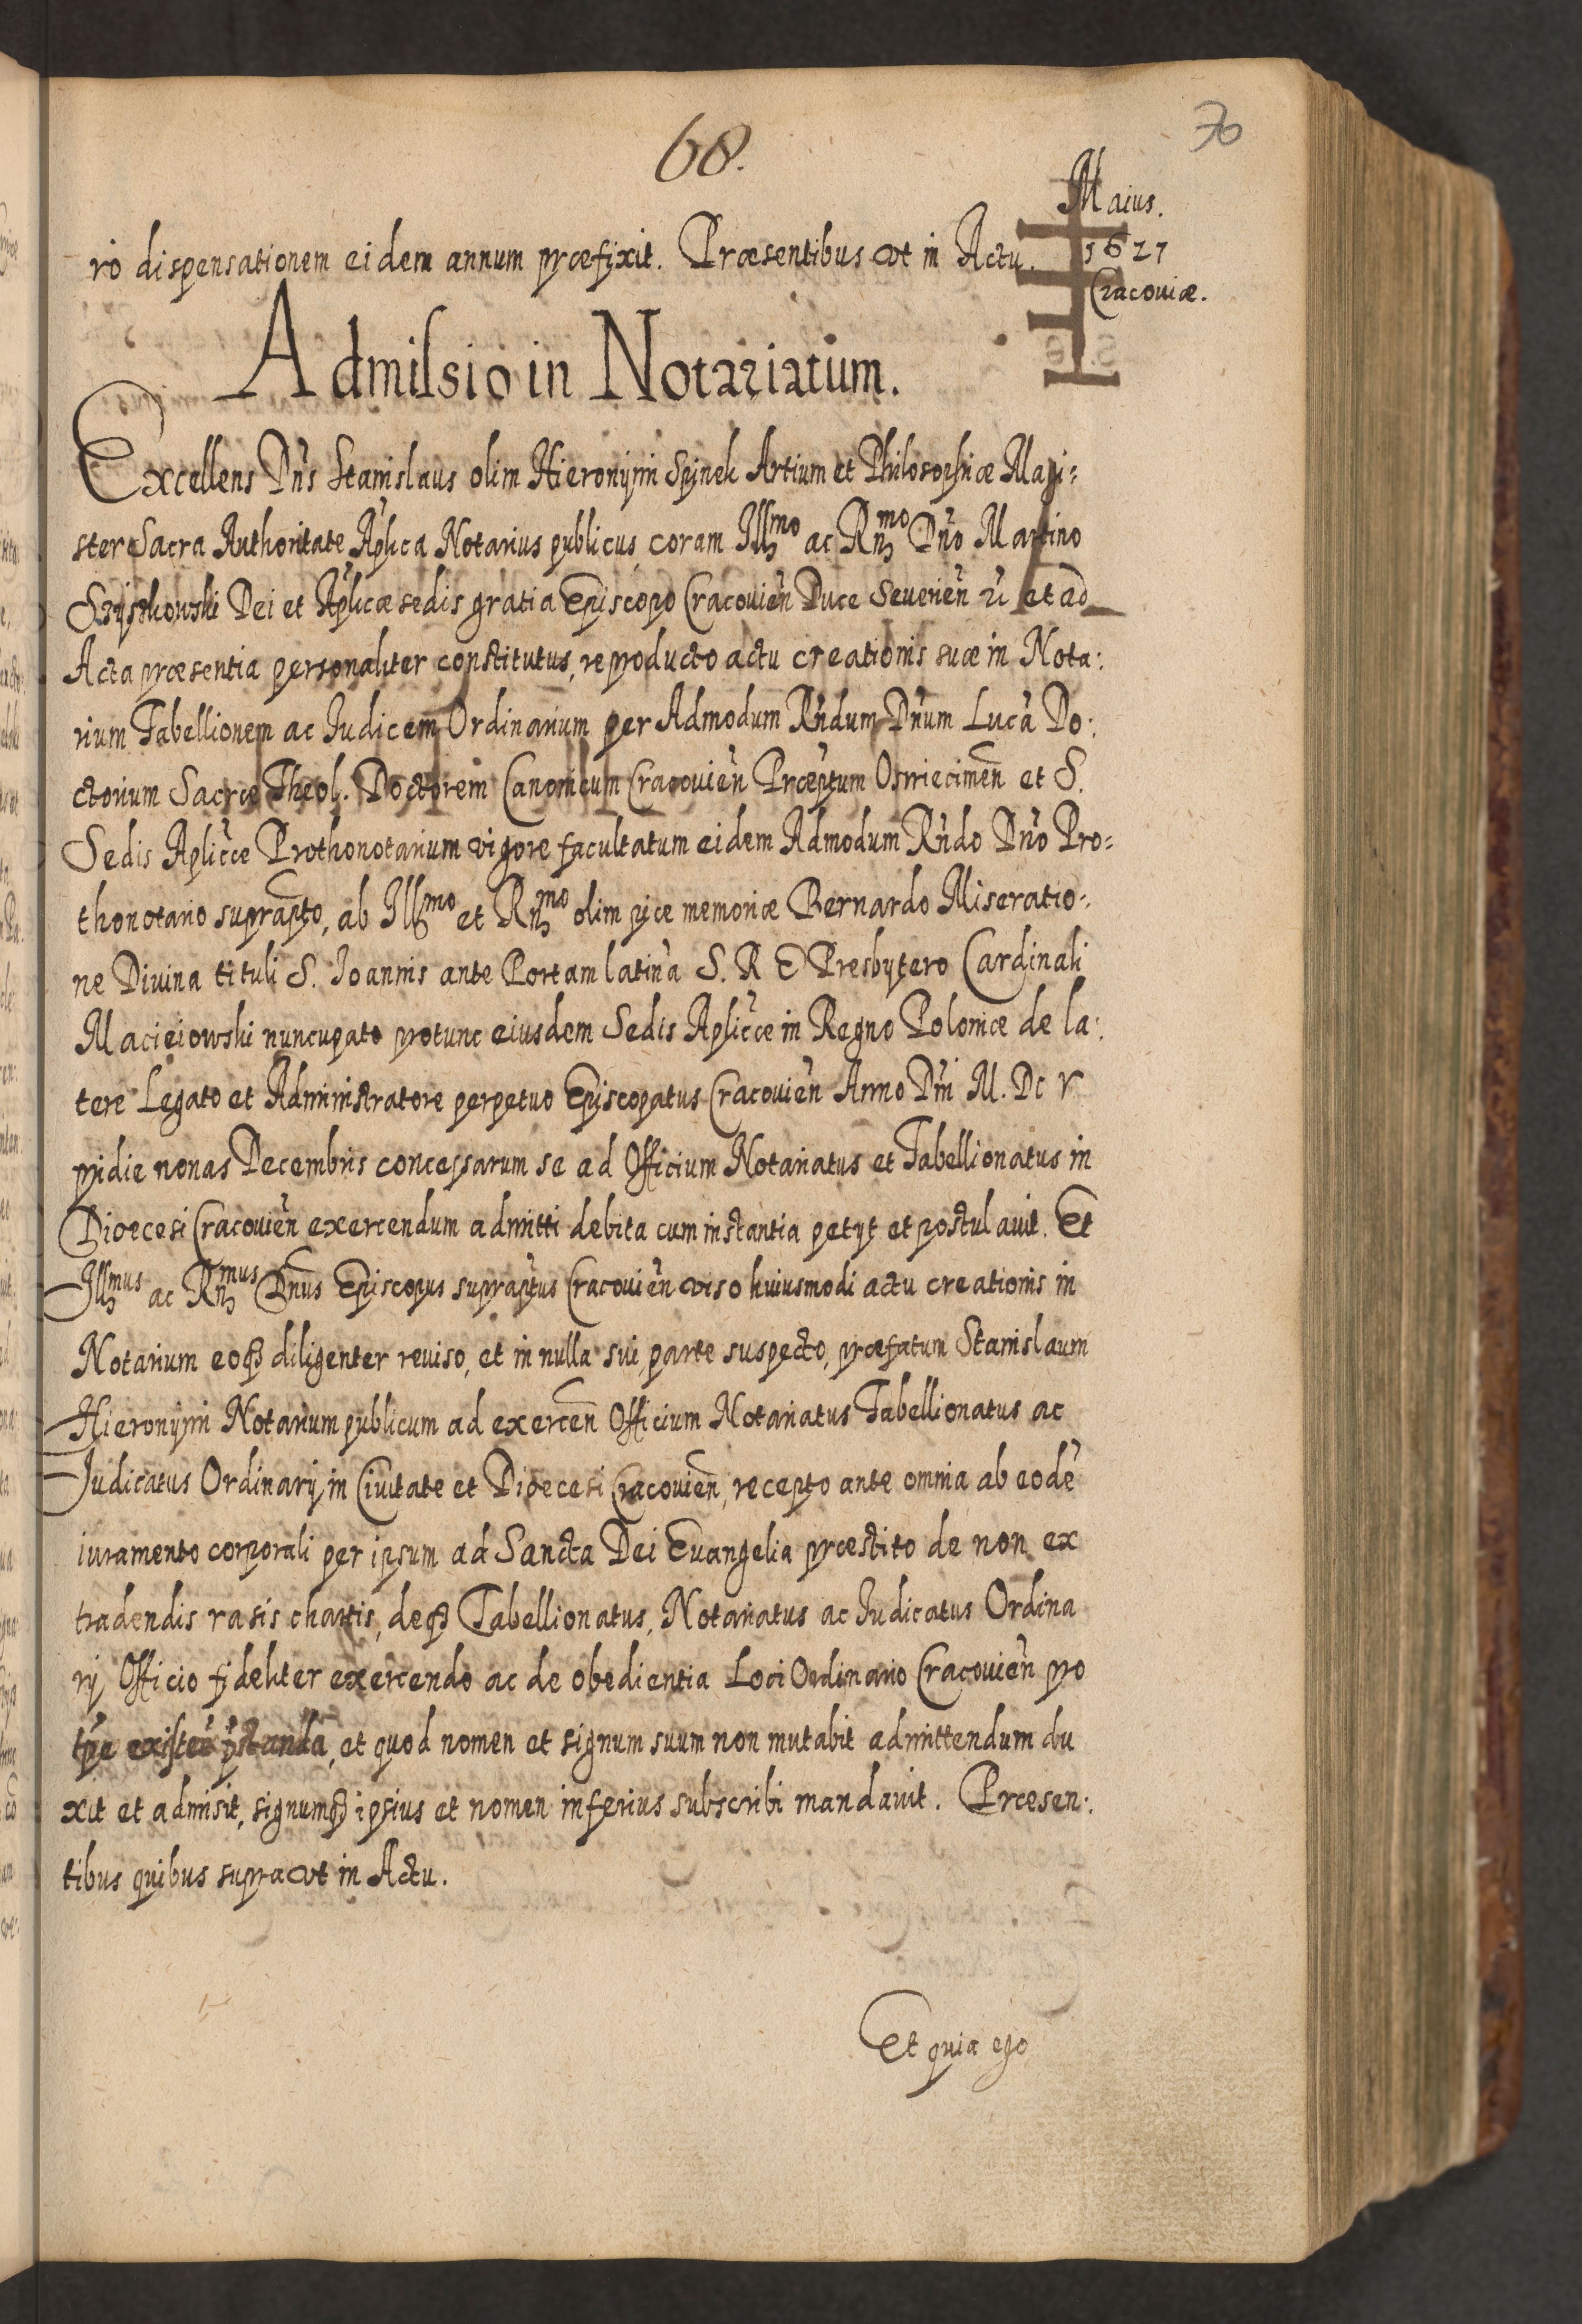 68.
70
Maius.
1627
Cracouiæ.
ro dispensationem eidem annum præfixit. Præsentibus vt in Actu.
Admissio in Notariatum.
Excellens Dn̄s Stanislaus olim Hieronymi Spinek Artium et Philosophiæ Magi:
ster Sacra Authoritate Aplica Notarius publicus coram Illmo ac Rnmo Dn̄o Martino
Szyszkowski Dei et Aplicæ sedis gratia Episcopo Cracouien̄ Duce Seuerien̄ et ad
Acta præsentia personaliter constitutus, reproducto actu creationis suæ in Nota:
rium Tabellionem ac Iudicem Ordinarium per Admodum Rn̄dum Dn̄um Lucā Do:
ctorium Sacræ Theol. Doctorem Canonicum Cracouien̄ Præptum Osvviecimen̄ et S.
Sedis Aplicæ Prothonotarium vigore facultatum eidem Admodum Rn̄do Dn̄o Pro:
thonotario suprapto, ab Illmo et Rnmo olim piæ memoriæ Bernardo Miseratio:
ne Diuina tituli S. Ioannis ante Portam latinā S. R E Presbytero Cardinali
Macieiowski nuncupato protunc eiusdem Sedis Aplicæ in Regno Poloniæ de la:
tere Legato et Administratore perpetuo Episcopatus Cracouien̄ Anno Dn̄i M. Dc V
pridie nonas Decembris concessarum se ad Officium Notariatus et Tabellionatus in
Dioecesi Cracouien̄ exercendum admitti debita cum instantia petyt et postulauit. Et
Illmus ac Rnmus Dn̄us Episcopus supraptus Cracouien̄ viso huiusmodi actu creationis in
Notarium eoq3 diligenter reuiso, et in nulla sui parte suspecto, præfatum Stanislaum
Hieronymi Notarium publicum ad exercen̄ Officium Notariatus Tabellionatus ac
Iudicatus Ordinarij in Ciuitate et Dioecesi Cracouien̄, recepto ante omnia ab eodē
iuramento corporali per ipsum ad Sancta Dei Euangelia præstito de non ex
tradendis rasis chartis, deq3 Tabellionatus, Notariatus ac Iudicatus Ordina
rij Officio fideliter exercendo ac de obedientia Loci Ordinario Cracouien̄ pro
tpe existen̄ pstanda, et quod nomen et signum suum non mutabit admittendum du
xit et admisit, signumq3 ipsius et nomen inferius subscribi mandauit. Præsen:
tibus quibus supra vt in Actu.
Et quia ego